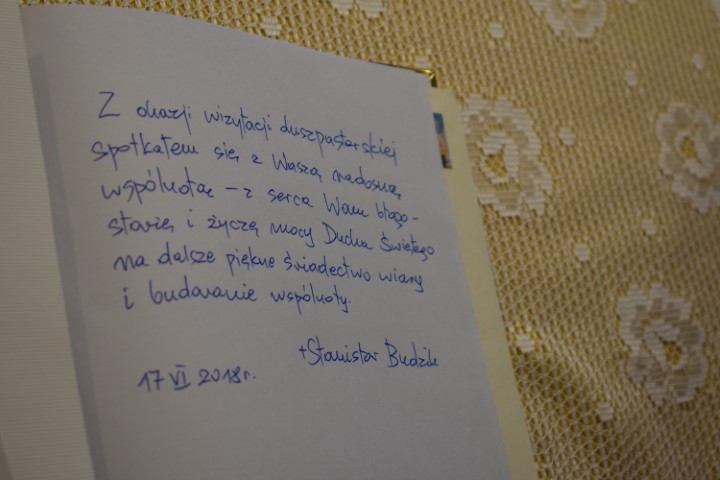 Z okazji wizytacji duszpasterskiej
spotkałem się z Waszą radosną
wspólnotą – z serca Wam błogo-
sławię i życzę mocy Ducha Świętego
na dalsze piękne świadectwo wiary
i budowanie wspólnoty.
+Stanisław Budzik
17 VI 2018r.